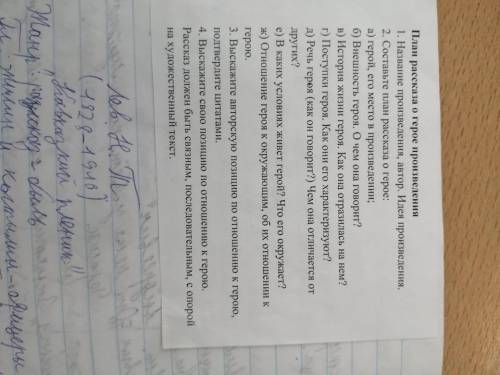 План рассказа о герое произведения
1. Название произведения, автор. Идея произведения.
2. Составьте план рассказа о герое:
а) герой, его место в произведении;
б) Внешность героя. О чем она говорит?
в) История жизни героя. Как она отразилась на нем?
г) Поступки героя. Как они его характеризуют?
д) Речь героя (как он говорит?) Чем она отличается от
других?
е) В каких условиях живет герой? Что его окружает?
ж) Отношение героя к окружающим, об их отношении к
герою.
3. Выскажите авторскую позицию по отношению к герою,
подтвердите цитатами.
4. Выскажите свою позицию по отношению к герою.
Рассказ должен быть связным, последовательным, с опорой
на художественный текст.
Лев. Н. Т
(1828-1910)
"Кавказкий пленик"
Жанр: рассказ - быль
Гл. жилин и костылин - офицеры